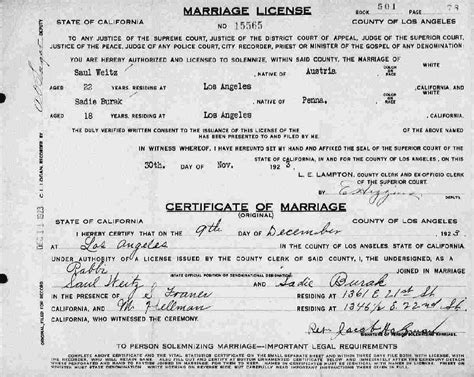 MARRIAGE LICENSE
BOOK 501 PAGE 73
STATE OF CALIFORNIA No 15565 COUNTY OF LOS ANGELES
TO ANY JUSTICE OF THE SUPREME COURT, JUSTICE OF THE DISTRICT COURT OF APPEAL, JUDGE OF THE SUPERIOR COURT,
JUSTICE OF THE PEACE, JUDGE OF ANY POLICE COURT, CITY RECORDER, PRIEST OR MINISTER OF THE GOSPEL OF ANY DENOMINATION
YOU ARE HEREBY AUTHORIZED AND LICENSED TO SOLEMNIZE, WITHIN SAID COUNTY, THE MARRIAGE OF
Saul Weitz, NATIVE OF Austria WHITE
AGED 22 YEARS, RESIDING AT Los Angeles, CALIFORNIA, AND WHITE
Sadie Burak, NATIVE OF Penna.
AGED 18 YEARS, RESIDING AT Los Angeles, CALIFORNIA.
THE DULY VERIFIED WRITTEN CONSENT TO THE ISSUANCE OF THIS LICENSE OF THE OF THE ABOVE NAMED
HAS BEEN PRESENTED TO AND FILED BY ME.
IN WITNESS WHEREOF, I HAVE HEREUNTO SET MY HAND AND AFFIXED THE SEAL OF THE SUPERIOR COURT OF THE
STATE OF CALIFORNIA, IN AND FOR THE COUNTY OF LOS ANGELES, ON THIS
30th. DAY OF Nov. 1923
L. E. LAMPTON, COUNTY CLERK AND EX-OFFICIO CLERK
OF THE SUPERIOR COURT.
BY E Higgins DEPUTY
CERTIFICATE OF MARRIAGE
(ORIGINAL)
STATE OF CALIFORNIA COUNTY OF LOS ANGELES
I HEREBY CERTIFY THAT ON THE 9th DAY OF December 1923
AT Los Angeles IN THE COUNTY OF LOS ANGELES, STATE OF CALIFORNIA,
UNDER AUTHORITY OF A LICENSE ISSUED BY THE COUNTY CLERK OF SAID COUNTY, I, THE UNDERSIGNED, AS A
Rabbi JOINED IN MARRIAGE
(STATE OFFICIAL POSITION OR DENOMINATIONAL DESIGNATION)
Saul Weitz AND Sadie Burak
IN THE PRESENCE OF RESIDING AT 1361 E 21st St.
CALIFORNIA, AND M Hellman RESIDING AT 1346½ E 22nd St.
CALIFORNIA, WHO WITNESSED THE CEREMONY.
TO PERSON SOLEMNIZING MARRIAGE—IMPORTANT LEGAL REQUIREMENTS
COMPLETE ABOVE CERTIFICATE AND THE VITAL STATISTICS CERTIFICATE ON THE SMALL SEPARATE SHEET AND WITHIN THREE DAYS FILE BOTH, AND THE LICENSE, WITH